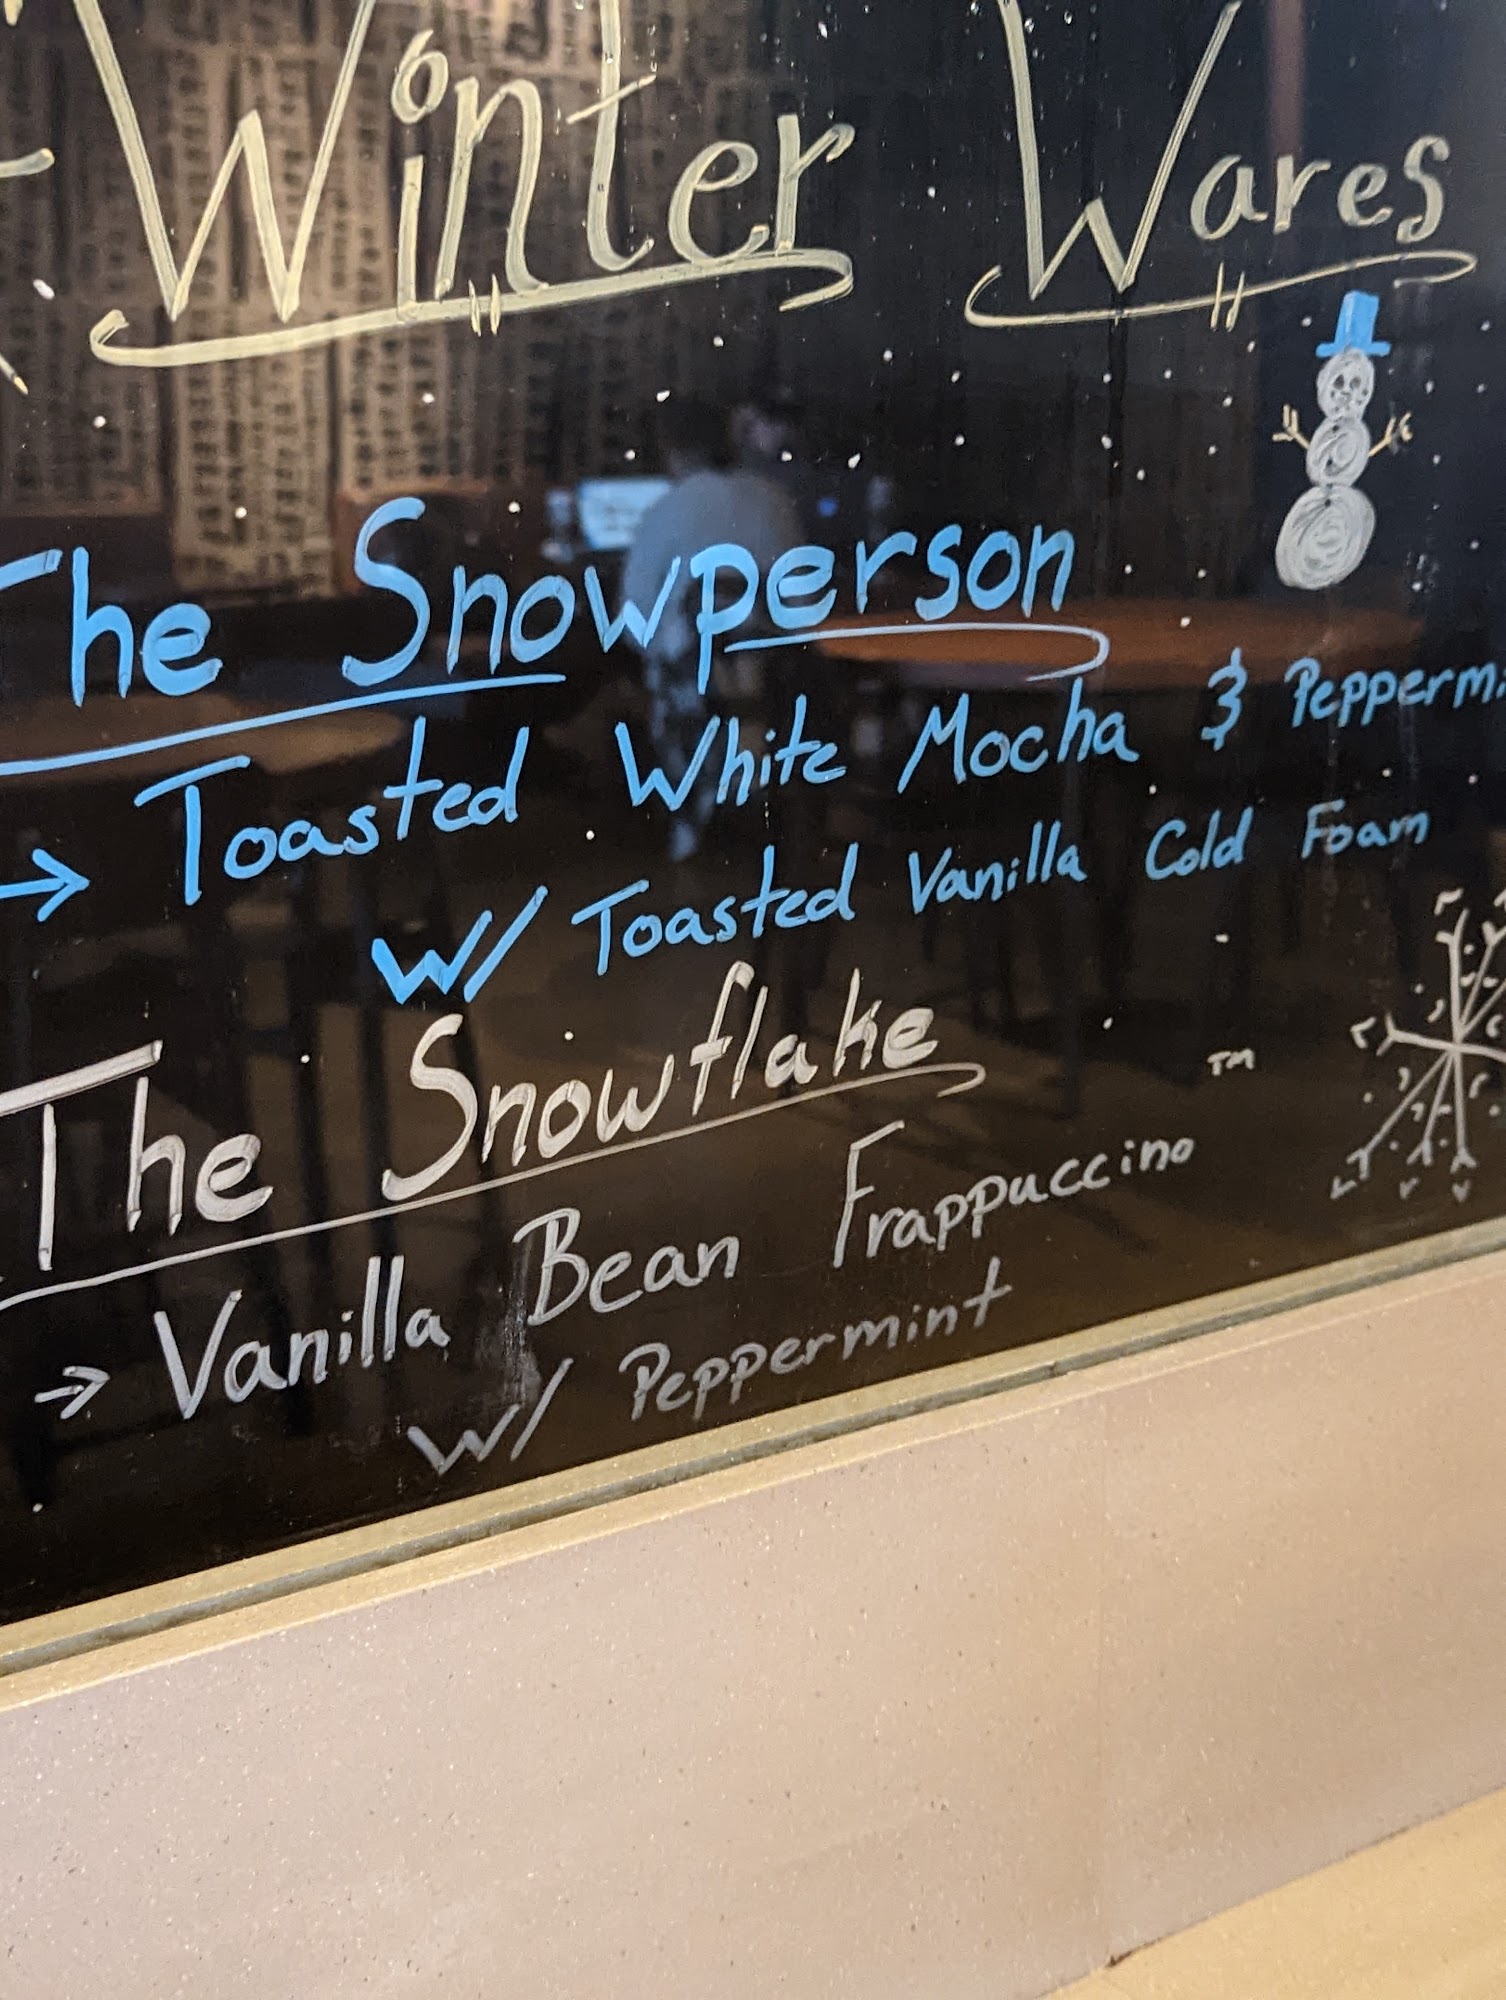 Winter Wares
The Snowperson
→ Toasted White Mocha & Peppermi
w/ Toasted Vanilla Cold Foam
The Snowflake
→ Vanilla Bean Frappuccino ™
w/ Peppermint